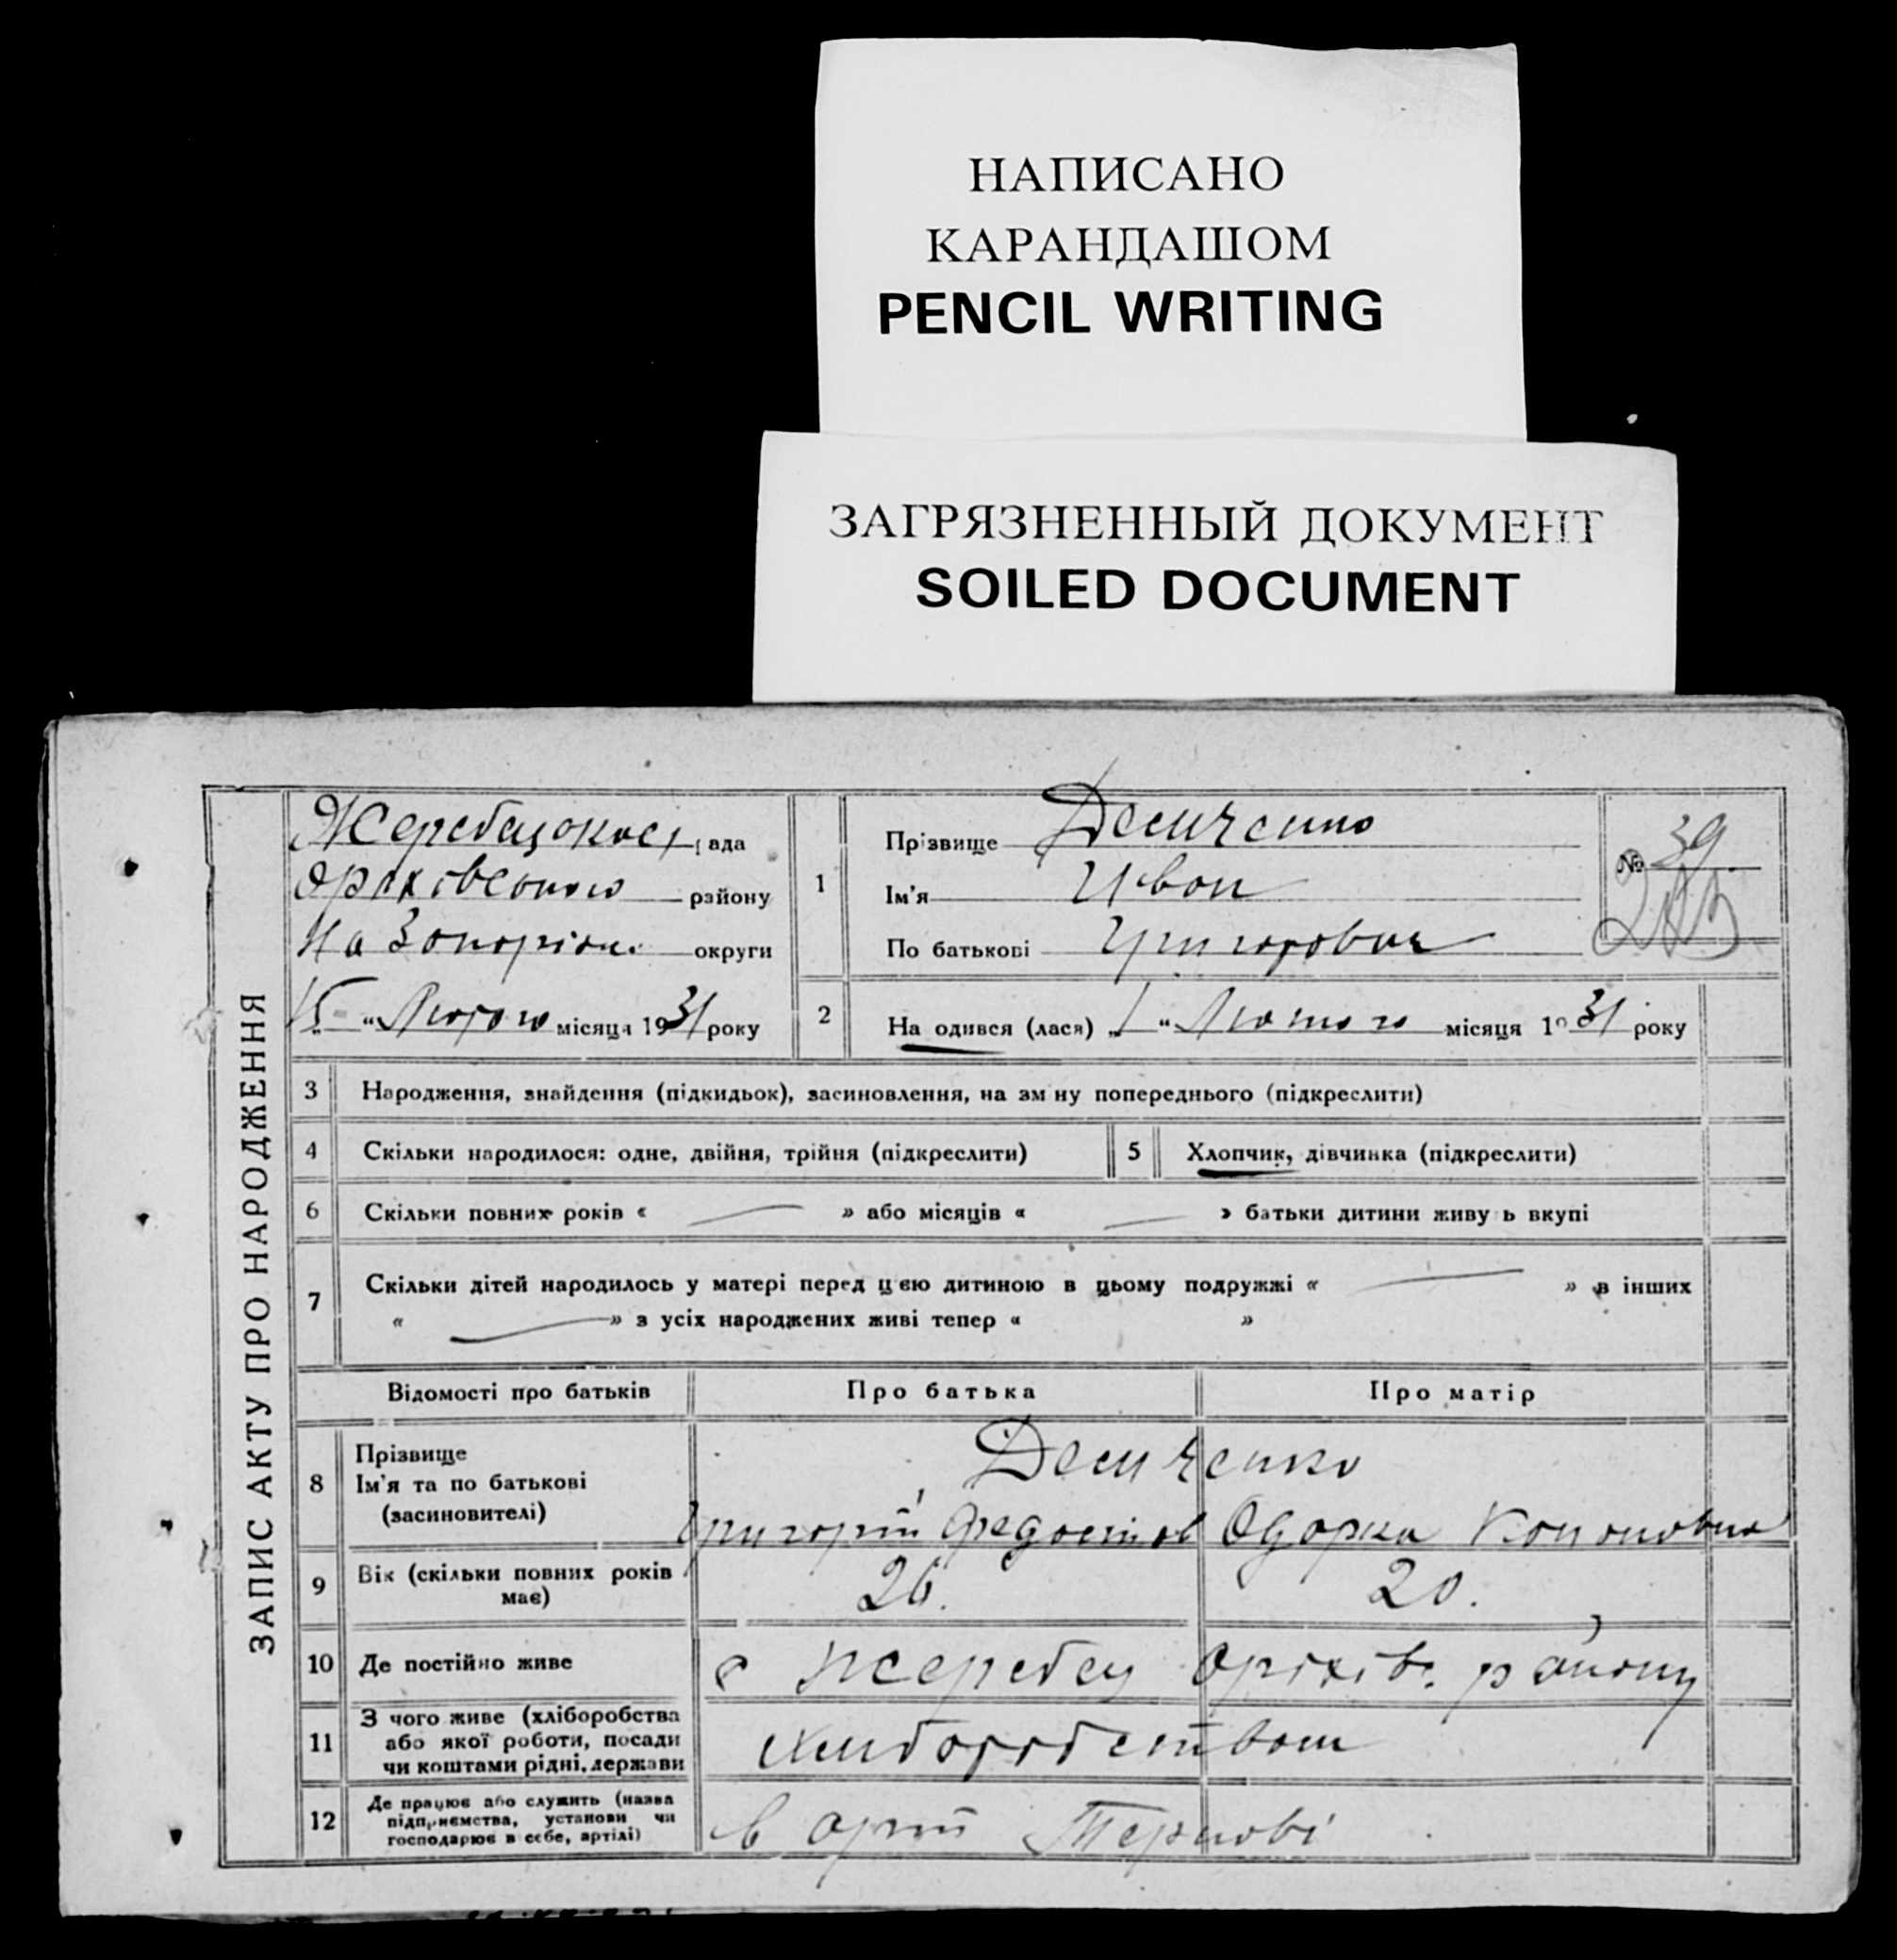 НАПИСАНО
КАРАНДАШОМ
PENCIL WRITING
ЗАГРЯЗНЕННЫЙ ДОКУМЕНТ
SOILED DOCUMENT
ЗАПИС АКТУ ПРО НАРОДЖЕННЯ
рада
району
округи
15 " Лютого місяця 1931 року
1
Прізвище
Ім'я Иван
По батькові Григорович
№ 39
2 На одився (лася) „1 " Лютого місяця 1931 року
3 Народження, знайдення (підкидьок), засиновлення, на зм ну попереднього (підкреслити)
4 Скільки народилося: одне, двійня, трійня (підкреслити)
5 Хлопчик, дівчинка (підкреслити)
6 Скільки повних років « — » або місяців « — » батьки дитини живу ь вкупі
7 Скільки дітей народилось у матері перед цією дитиною в цьому подружжі « — » в інших
« — » з усіх народжених живі тепер « »
Відомості про батьків Про батька Про матір
8 Прізвище
Ім'я та по батькові
(засиновителі)
Одарка
9 Вік (скільки повних років
має)
26. 20.
10 Де постійно живе
с Жеребец Оріхів. району
11 З чого живе (хліборобства
або якої роботи, посади
чи коштами рідні, держави
12 Де працює або служить (назва
підприємства, установи чи
господарює в себе, артілі)
в